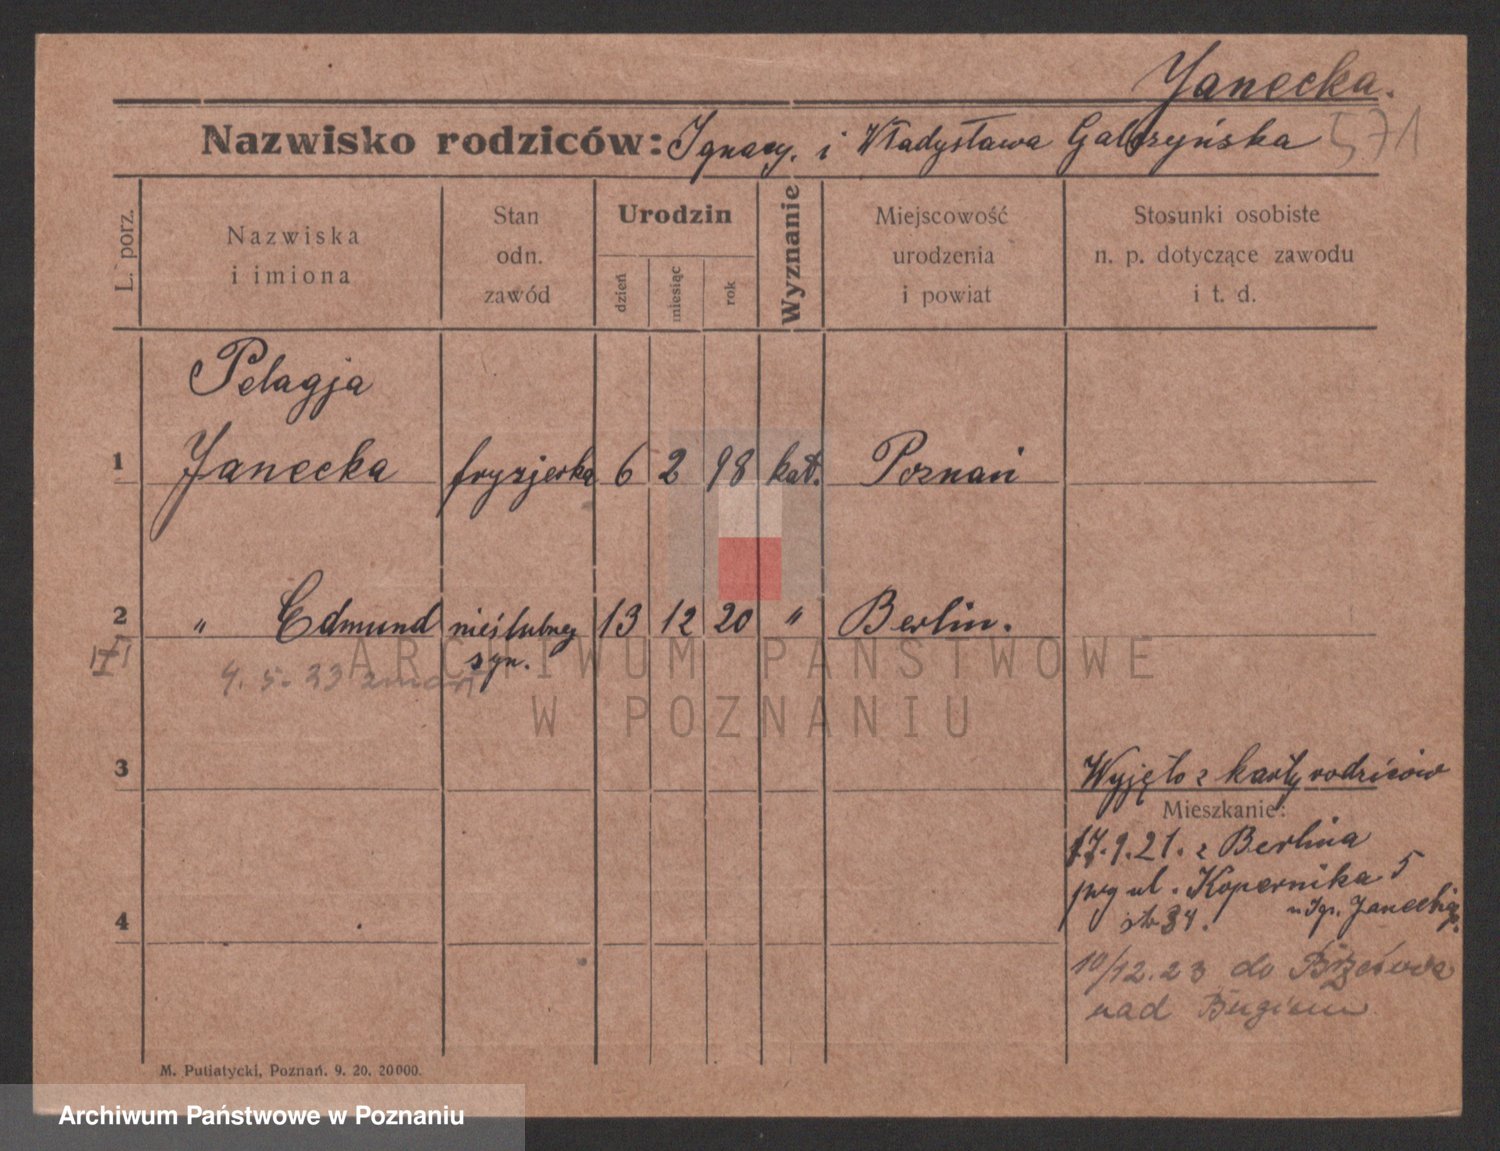 Janecka.
Nazwisko rodziców: Ignacy. i Władysława Gałczyńska 571
L. porz.
Nazwiska
i imiona
Stan
odn.
zawód
Urodzin
dzień
miesiąc
rok
Wyznanie
Miejscowość
urodzenia
i powiat
Stosunki osobiste
n. p. dotyczące zawodu
i t. d.
Pelagja
1 Janecka fryzjerka 6 2 98 kat. Poznań
2 " Edmund nieślubny 13 12 20 " Berlin.
syn.
4. 5. 23 zmarł
ARCHIWUM PAŃSTWOWE
W POZNANIU
3
Wyjęto z karty rodziców
Mieszkanie:
17.9.21. z Berlina
ul. Kopernika 5
u Ign. Janeckiego.
4
10/12.23 do
nad Bugiem
M. Putiatycki, Poznań. 9. 20. 20000.
Archiwum Państwowe w Poznaniu